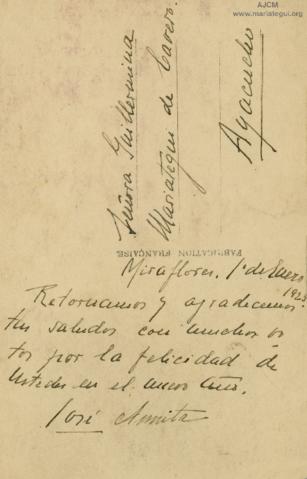 AJCM
www.mariategui.org
Señora Guillermina
Mariategui de Cavero.
Ayacucho
FABRICATION FRANÇAISE
Miraflores, 1º de Enero
Retornamos y agradecemos
tus saludos con muchos vo
tos por la felicidad de
Ustedes en el nuevo año.
José Anita